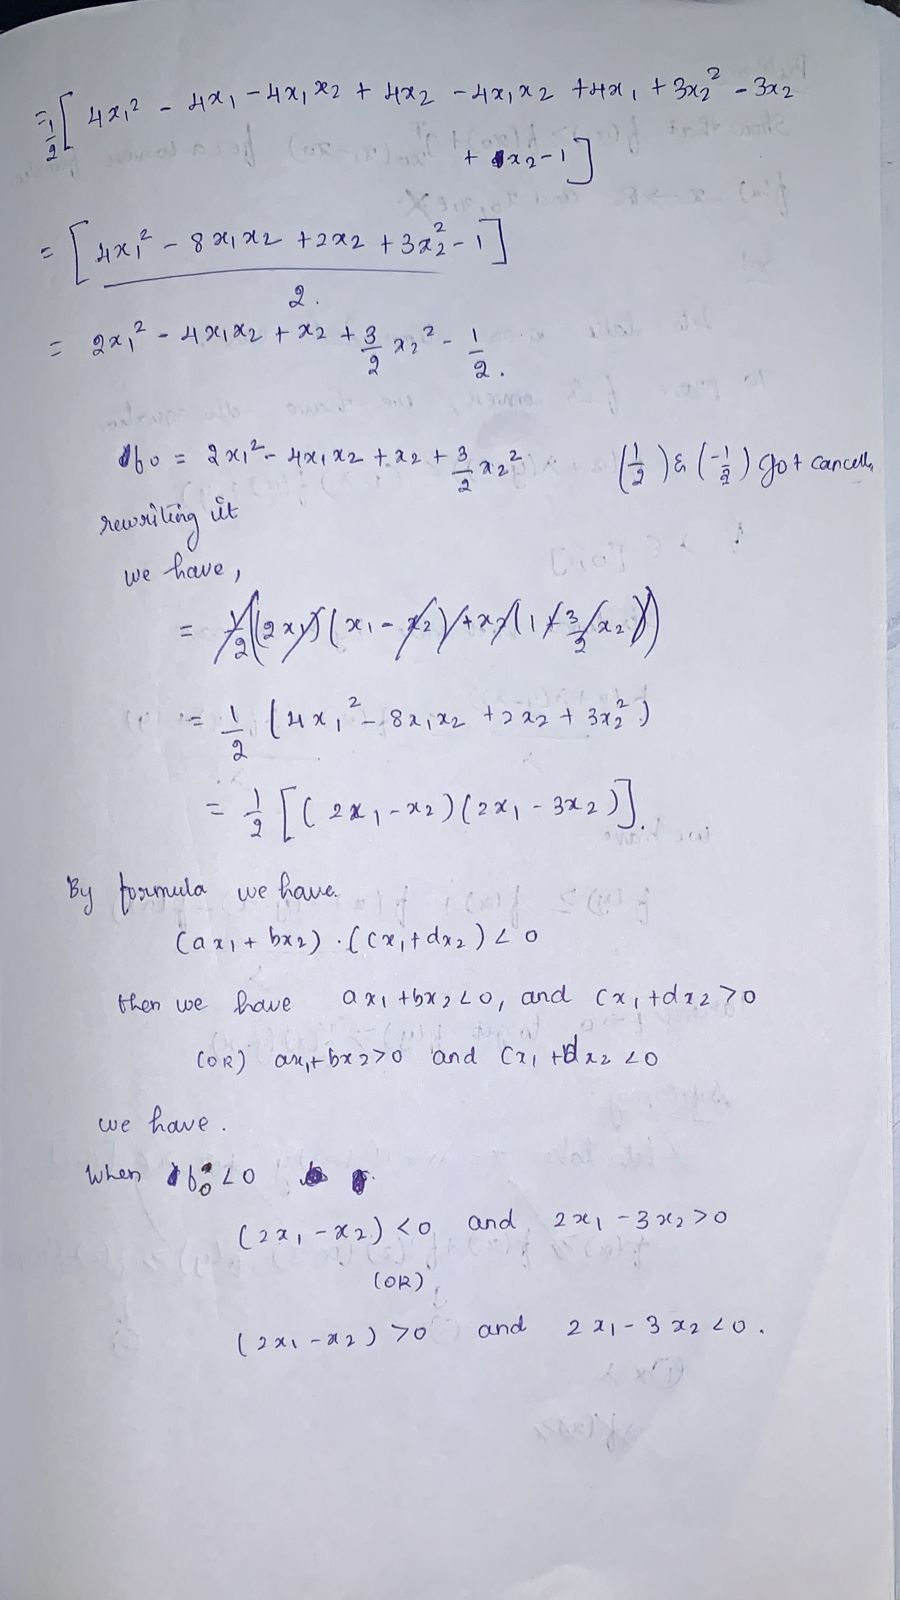 = 1/2 [ 4x₁² - 4x₁ - 4x₁x₂ + 4x₂ - 4x₁x₂ + 4x₁ + 3x₂² - 3x₂
+ x₂ - 1 ]
= [ 4x₁² - 8x₁x₂ + 2x₂ + 3x₂² - 1 ] / 2.
= 2x₁² - 4x₁x₂ + x₂ + 3/2 x₂² - 1/2.
= 2x₁² - 4x₁x₂ + x₂ + 3/2 x₂² (1/2) & (-1/2) got cancell
rewriting it
we have,
= 1/2 ((2x₁)(x₁ - x₂) + x₂(1 + 3/2 x₂))
= 1/2 (4x₁² - 8x₁x₂ + 2x₂ + 3x₂²)
= 1/2 [(2x₁ - x₂)(2x₁ - 3x₂)].
By formula we have.
(ax₁ + bx₂) · (cx₁ + dx₂) < 0
then we have ax₁ + bx₂ < 0, and cx₁ + dx₂ > 0
(OR) ax₁ + bx₂ > 0 and cx₁ + dx₂ < 0
we have.
When < 0
(2x₁ - x₂) < 0 and 2x₁ - 3x₂ > 0
(OR)
(2x₁ - x₂) > 0 and 2x₁ - 3x₂ < 0.